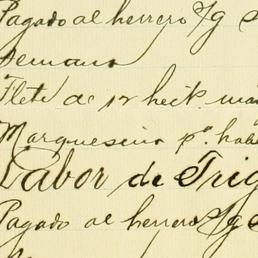 Pagado al herrero s/g S
Semana
Flete de 12 hect. ma
Marqueseiro pª. hab
Labor de Trig
Pagado al herrero s/g S